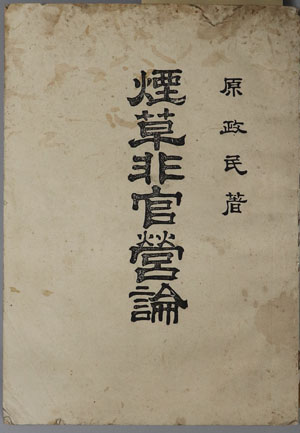 原政民著
煙草非官營論